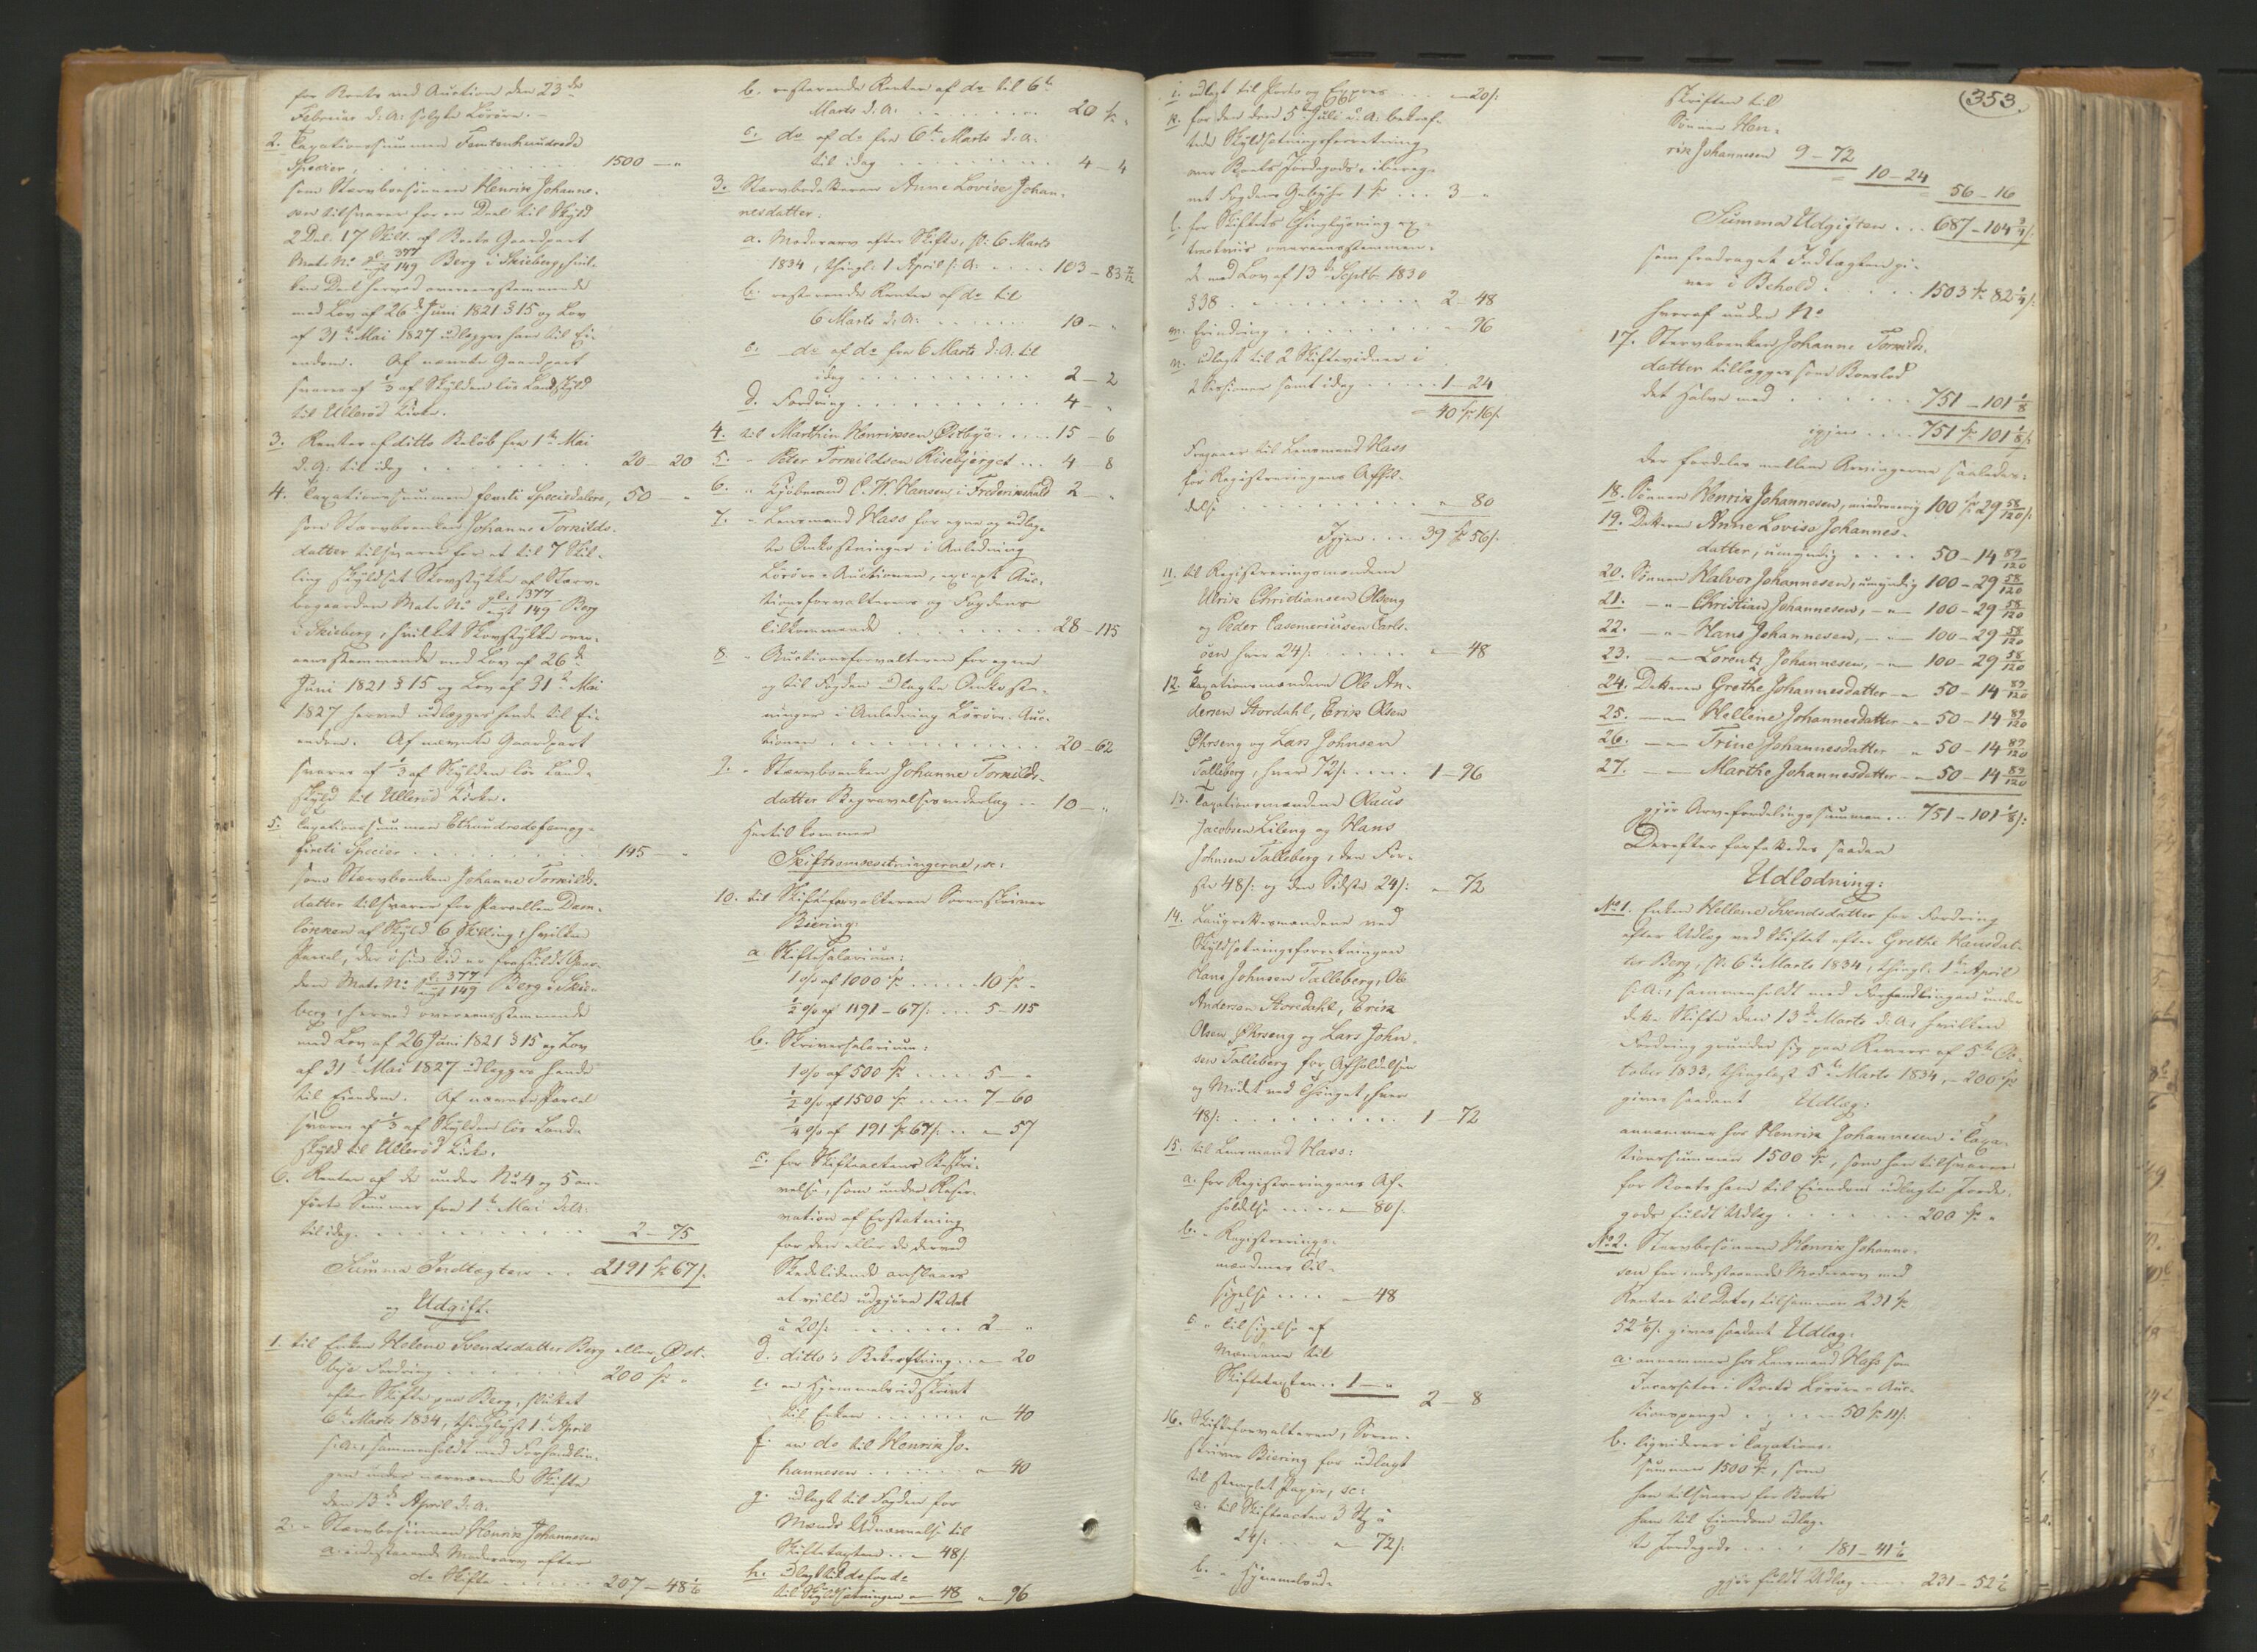 for Boets ved Auction den 23de
Februar d: A: solgte Løsøre. –
2. Taxationssummen Femtenhundrede
Specier, . . . . . . 1500 – "
som Stervboesønnen Henrik Johanne-
sen tilsvarer for en Deel til Skyld
2 Dal. 17 Skill. af Boets Gaardpart
Matr: No gl. 377 / nyt 149 Berg i Skieberg, hvil-
ken Deel herved overeensstemmende
med Lov af 26de Juni 1821 § 15 og Lov
af 31te Mai 1827 udlægges ham til Ei-
endom. Af nævnte Gaardpart
svares af 1/3 af Skylden løs Landskyld
til Ullerød Kirke.
3. Renter af ditto Beløb fra 1te Mai
d. A: til idag . . . . . . 20 – 20
4. Taxationssummen femti Speciedaler, 50 – "
som Stervboenken Johanne Torkilds-
datter tilsvarer for et til 7 Skil-
ling skyldsat Skovstykke af Stærv-
bogaarden Matr No gl. 377 / nyt 149 Berg
i Skieberg, hvilket Skovstykke over-
eensstemmende med Lov af 26de
Juni 1821 § 15 og Lov af 31te Mai
1827 herved udlægges hende til Ei-
endom. Af nævnte Gaardpart
svares af 1/3 af Skylden løs Land-
skyld til Ullerød Kirke.
5. Taxationssummen Ethundredefemog-
firti Specier . . . . . . 145 – "
som Stervboenken Johanne Torkilds-
datter tilsvarer for Parcellen Dam-
løkken af Skyld 6 Skilling, hvilken
Parcel, der i sin Tid er fraskildt Gaar-
den Matr: No gl. 377 / nyt 149 Berg i Skie-
berg, herved overeensstemmende
med Lov af 26 Juni 1821 § 15 og Lov
af 31te Mai 1827 udlægges hende
til Eiendom. Af nævnte Parcel
svares af 1/3 af Skylden løs Land-
skyld til Ullerød Kirke.
6. Renter af de under No 4 og 5 an-
førte Summer fra 1te Mai d: A:
til idag . . . . . . 2 – 75
Summa Indtægten . . 2191 Sp 67 s.
og Udgift.
1. til Enken Helene Svendsdatter Berg eller Øst-
bye Fordring . . . . . . 200 Sp "
efter Skifte paa Berg, sluttet
6te Marts 1834, thinglyst 1te April
s: A:, sammenholdt med Forhandlin-
gen under nærværende Skifte
den 13de April d: A:
2. " Stærvbosønnen Henrik Johannesen
a. indestaaende Moderarv efter
do Skifte . . . . . . 207 – 48 1/6
b. resterende Renter af do til 6te
Marts d: A: . . . . . . 20 Sp "
c. do af do fra 6te Marts d: A:
til idag . . . . . . 4 – 4
3. Stærvbodatteren Anne Lovise Johan-
nesdatter:
a. Moderarv efter Skifte, sl: 6 Marts
1834, thingl: 1 April s: A: . . . 103 – 83 7/12
b. resterende Renter af do til
6 Marts d: A: . . . . . . 10 – "
c. do af do fra 6 Marts d: A: til
idag . . . . . . 2 – 2
d. Fordring . . . . . . 4 – "
4. til Marthin Henriksen Østbye . . . 15 – 6
5. " Peter Torkildsen Risebjerget . . . 4 – 8
6. " Kjøbmand C. W. Hansen i Frederikshald 2 – "
7. " Lensmand Hass for egne og udlag-
te Omkostninger i Anledning
Løsøre-Auctionen, except Auc-
tionsforvalterens og Fogdens
Tilkommende . . . . . . 28 – 115
8. " Auctionsforvalteren for egne
og til Fogden udlagte Omkost-
ninger i Anledning Løsøre-Auc-
tionen . . . . . . 20 – 62
9. " Stærvboenken Johanne Torkilds-
datter Begravelsesvederlag . . 10 – "
hertil kommer
Skifteomkostningerne, sc:
10. til Skifteforvalteren Sorenskriver
Biering:
a Skiftesalarium:
1 o/o af 1000 Sp . . . . 10 Sp "
1/2 o/o af 1191 – 67 s. . . . 5 – 115
b. Skriversalarium:
1 o/o af 500 Sp . . . . 5 – "
1/2 o/o af 1500 Sp . . . . 7 – 60
1/4 o/o af 191 Sp 67 s. . . " 57
c. for Skifteactens Beskri-
velse, som under Reser-
vation af Erstatning
for den eller de derved
Skadelidende anslaaes
at ville udgjøre 12 Ark
à 20 s. . . . . . . 2 – "
d. ditto's Bekræftning . . " 20
e. en Hjemmelsudskrivt
til Enken . . . . . . " 40
f. en do til Henrik Jo-
hannesen . . . . . . " 40
g. udlagt til Fogden for
Mænds Udnævnelse til
Skiftetaxten . . " 48 s.
h. Udlagt til do for do
til Skyldsætningen " 48 " 96
i. udlagt til Porto og Expres . . . " 20 s.
k. for den den 5te Juli d. A: bekræf-
tede Skyldsætningsforretning
over Boets Jordegods, ibereg-
net Fogdens Gebyhr 1 Sp . . . 3 – "
l. for Skiftets Thinglysning ex-
tractviis overeensstemmen-
de med Lov af 13de Septb. 1830
§ 38 . . . . . . 2 – 48
m. Erindring . . . . . . " 96
n. udlagt til 2 Skiftevidner i
2 Sessioner samt idag . . . . 1 – 24
= 40 Sp 16 s.
Fragaaer til Lensmand Hass
for Registreringens Afhol-
delse . . . . . . " 80
Igjen . . . 39 Sp 56 s.
11. til Registreringsmændene
Ulrik Christiansen Olseng
og Peder Casemeriussen Carls-
øen hver 24 s. . . . . " 48
12. Taxationsmændene Ole An-
dersen Stordahl, Erik Olsen
Ohrseng og Lars Johnsen
Talleberg, hver 72 s. . . . 1 – 96
13. Taxationsmændene Olaus
Jacobsen Lileng og Hans
Johnsen Talleberg, den Før-
ste 48 s: og den Sidste 24 s: " 72
14. Laugrettesmændene ved
Skyldsætningsforretningen
Hans Johnsen Talleberg, Ole
Andersen Storedahl, Erik
Olsen Ohrseng og Lars John-
sen Talleberg for Afholdelsen
og Mødet ved Thinget, hver
48 s: . . . . . . 1 – 72
15. til Lensmand Hass:
a. for Registreringens Af-
holdelse . . . . " 80 s.
b. " Registrerings-
mændenes Til-
sigelse . . . . " 48
c. " Tilsigelse af
Mændene til
Skiftetaxten . . 1 – "
2 – 8
16. Skifteforvalteren, Soren-
skriver Biering for udlagt
til stemplet Papir, sc:
a. til Skifteacten 3 St à
24 s. . . . " 72 s.
b. " Hjemmelsud-
353.
skriften til
Sønnen Hen-
rik Johannesen 9 – 72
10 – 24
56 – 16
Summa Udgiften . . . 687 – 104 3/4 s.
som fradraget Indtægten gi-
ver i Behold . . . . . 1503 Sp 82 1/4 s.
hvoraf under No
17. Stervboenken Johanne Torkilds-
datter tillægges som Boeslod
det Halve med . . . . . . 751 – 101 1/8
igjen . . . . 751 Sp 101 1/8 s.
der fordeles mellem Arvingerne saaledes:
18. Sønnen Henrik Johannesen, mindreaarig 100 Sp 29 58/120 s.
19. Datteren Anne Lovise Johannes-
datter, umyndig . . . . 50 – 14 89/120
20. Sønnen Halvor Johannesen, umyndig 100 – 29 58/120
21. – " – Christian Johannesen, – " – 100 – 29 58/120
22. – " – Hans Johannesen, – " – 100 – 29 58/120
23. – " – Lorentz Johannesen, – " – 100 – 29 58/120
24. Datteren Grethe Johannesdatter – " 50 – 14 89/120
25. – " – Hellene Johannesdatter – " 50 – 14 89/120
26. – " – Trine Johannesdatter " 50 – 14 89/120
27. – " – Marthe Johannesdatter – " 50 – 14 89/120
gjør Arvefordelingssummen . . 751 – 101 1/8 s:
Derefter forfattedes saadan
Udlodning:
No 1. Enken Hellene Svendsdatter for Fordring
efter Udlæg ved Skiftet efter Grethe Hansdat-
ter Berg, sl. 6te Marts 1834, thingl. 1te April
s. A:, sammenholdt med Forhandlingen under
dette Skifte den 13de Marts d. A:, hvilken
Fordring grunder sig paa Revers af 5te Oc-
tober 1833, thinglæst 5te Marts 1834, – 200 Sp
gives saadant Udlæg:
annammer hos Henrik Johannesen i Taxa-
tionssummen 1500 Sp, som han tilsvarer
for Boets ham til Eiendom udlagte Jorde-
gods fuldt Udlæg . . . . . . 200 Sp "
No 2. Stervbosønnen Henrik Johanne-
sen for indestaaende Moderarv med
Renter til Dato, tilsammen 231 Sp
52 1/6 s. gives saadant Udlæg:
a. annammer hos Lensmand Hass som
Incassator i Boets Løsøre-Auc-
tionspenge . . . . . 50 Sp 11 s.
b. liqviderer i Taxations-
summen 1500 Sp, som
han tilsvarer for Boets
ham til Eiendom udlag-
te Jordegods . . . . 181 – 41 1/6
gjør fuldt Udlæg . . . 231 – 52 1/6